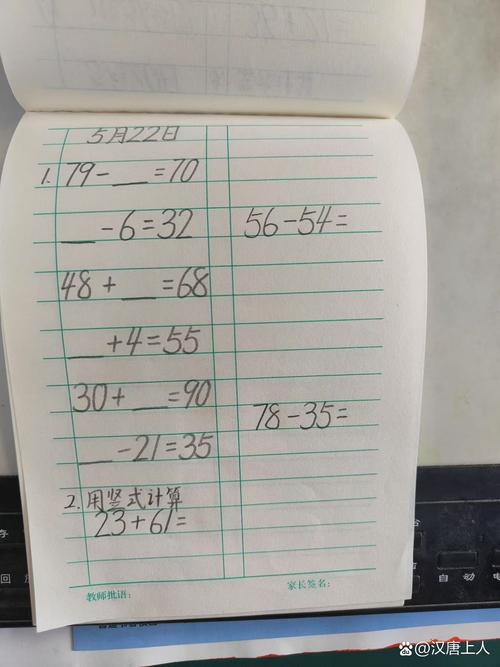 5月22日
1. 79-__=70
__-6=32
48+__=68
__+4=55
30+__=90
__-21=35
2. 用竖式计算
23+61=
56-54=
78-35=
教师批语：
家长签名：
回
自动
电
汉唐上人